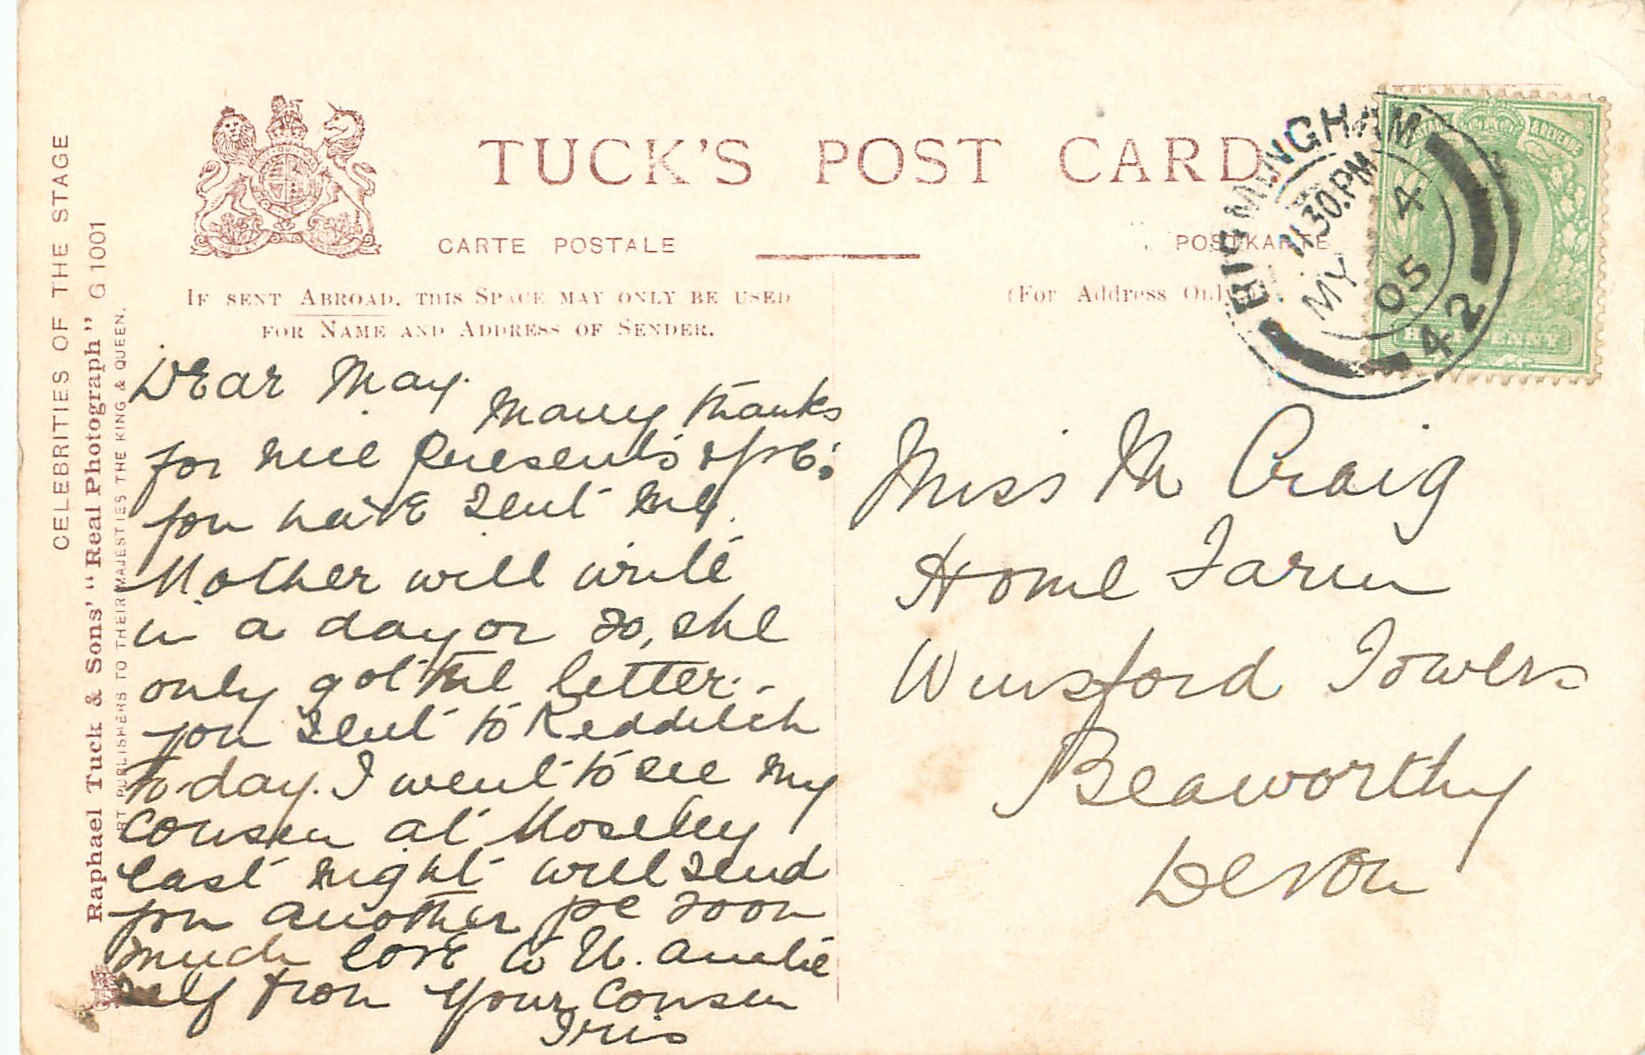 TUCK'S POST CARD
CARTE POSTALE
POSTKARTE
IF SENT ABROAD, THIS SPACE MAY ONLY BE USED
FOR NAME AND ADDRESS OF SENDER.
(For Address Only
BIRMINGHAM
11.30.PM
MY 4
05
42
HALFPENNY
CELEBRITIES OF THE STAGE
Raphael Tuck & Sons' "Real Photograph" G 1001
ART PUBLISHERS TO THEIR MAJESTIES THE KING & QUEEN.
Dear May.
Many thanks
for nice presents of
you have sent me.
Mother will write
in a day or so, she
only got the letter
you sent to Redditch
to day. I went to see my
Consen at Moseley
last night will send
you another pc soon
much love to U. auntie
self from Your Consen
Iris
Miss M Craig
Home Farm
Winsford Towers
Beaworthy
Devon